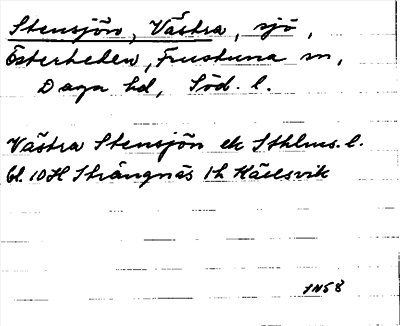 Stensjön, Västra, sjö,
Österheden, Frustuna sn,
Daga hd, Söd. l.
Västra Stensjön ek Sthlms. l.
bl. 10H Strängnäs 1h Käilsvik
JN58